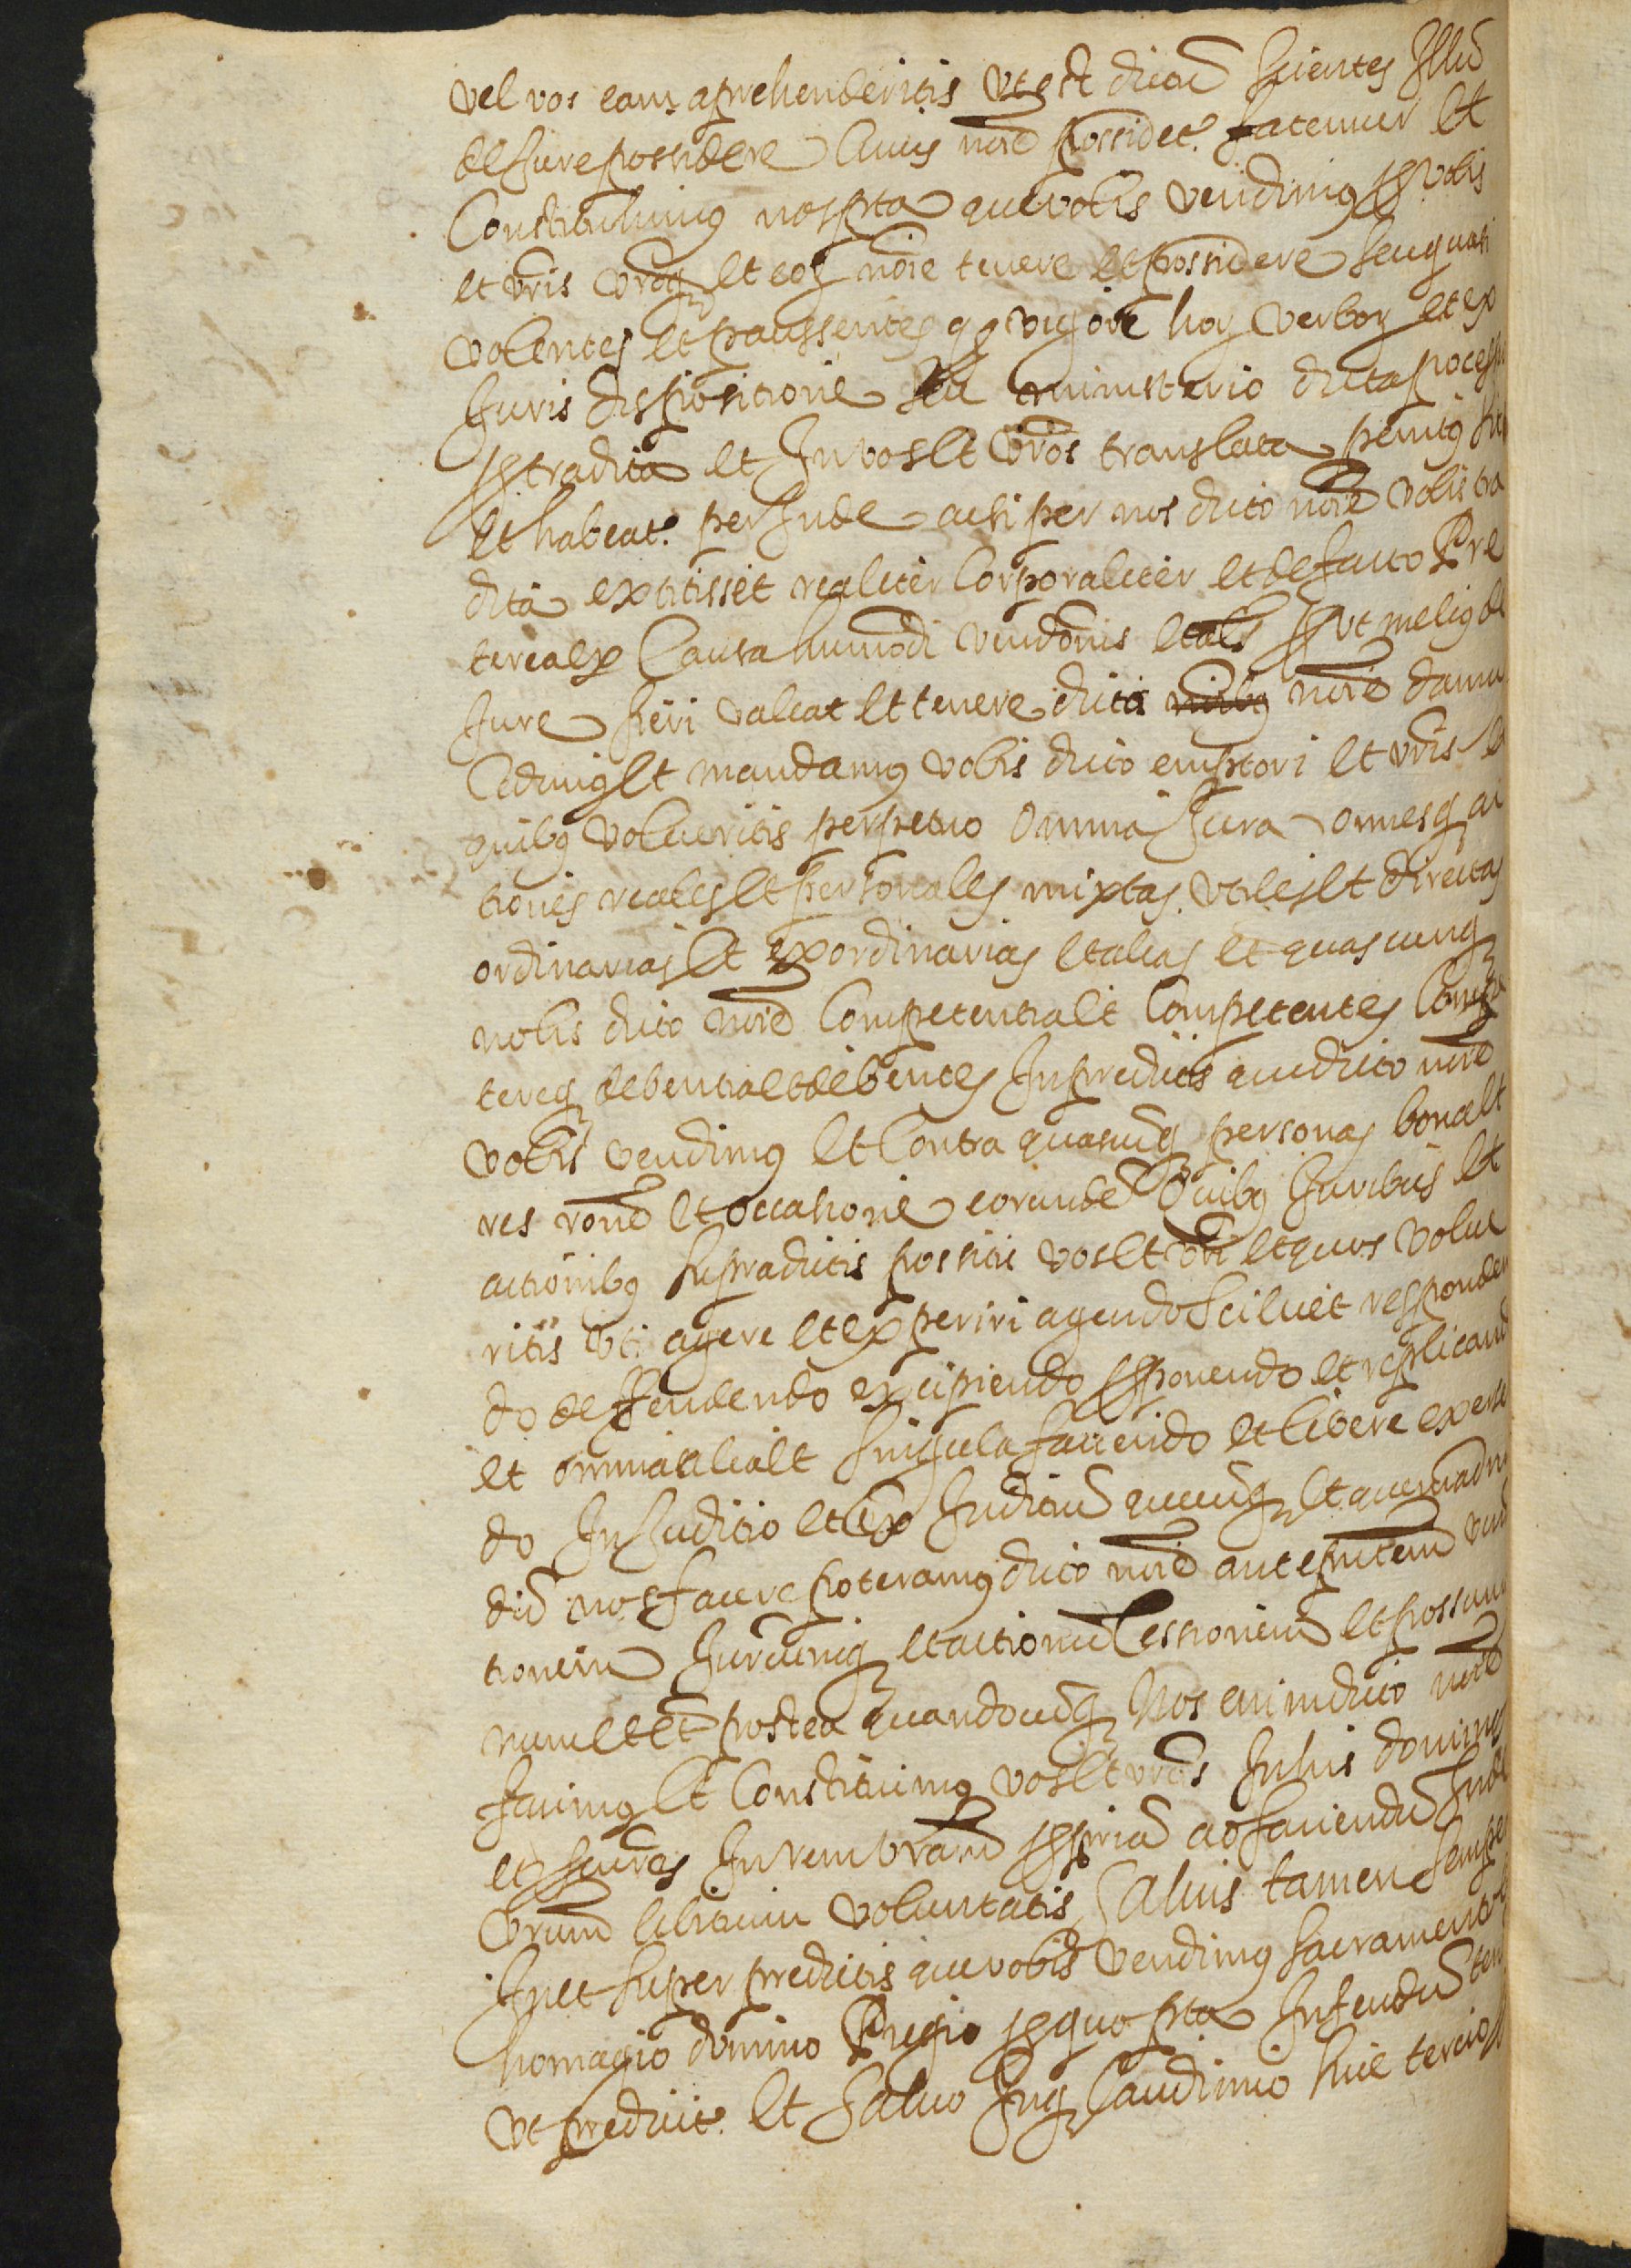 vel vos eam aprehenderitis ut est dictu scientes Illu
de Jure possidere Cuius noie possidet. fatemur Et
Constituimus nos pta que vobis vendimus p vobis
et vris vroq et eoq noie tenere et possidere seu quasi
volentes et paussentes q vigore hoq verboq et ex
Juris dispositione seu ministerio dicta pocess
p tradita et In vos Et vros translata penitus sit
Et habeat. perInde acsi per nos dicto noie vobis tra
dita extitisset realiter Corporaliter et de facto Pre
terea ex Causa huiusmodi vendonis et als put melius de
Jure fieri valeat Et tenere dicti noie damus
Cedimus Et mandamus vobis dicto emptori Et vris Et
quibus volueritis perpetuo Omnia Jura omnesq ac
tiones reales Et personales mixtas utiles Et directas
ordinarias Et exordinarias Et alias et quascunq
nobis dicto noie Competentia Et Competentes Compe
tereq debentia et debentes In predictis que dicto noie
vobis vendimus Et Contra quascuq personas bona Et
res rone Et occasione eorunde Quibus Juribus Et
actionibus supradictis possitis vos Et vri Et quos volue
ritis uti agere et experiri agendo scilicet responden
do deffendendo excipiendo pponendo et replicand
et omnia alia Et singula faciendo et libere exercen
do In Juditio et Ex Juditiu quecuq Et quemadmo
du nos facere poteramus dicto noie ante pntem vend
tionem Juriumq et actionu Cessionem Et possum
nunc Et Et postea quandocuq Nos enim dicto noie
facimus Et Constituimus vos Et vros In his dominos
et pcures In rem vram ppria ad faciendu Inde
vrum libitum voluntatis Salvis tamen semper
In et super predictis que vobis vendimus sacramento Et
homagio domino Regio p quo pta In feudu ten
ut predicit. Et Salvo Inq Laudimio sive tercio